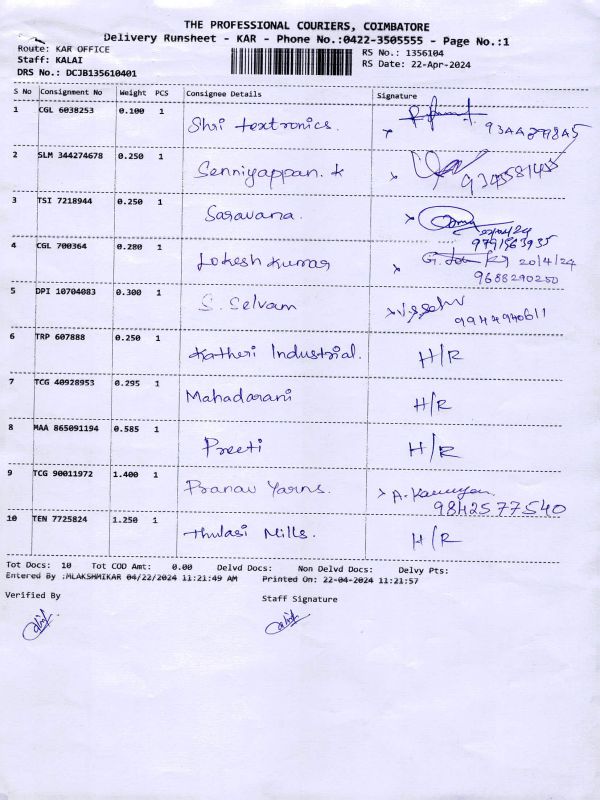 THE PROFESSIONAL COURIERS, COIMBATORE
Delivery Runsheet - KAR - Phone No.:0422-3505555 - Page No.:1
Route: KAR OFFICE
RS No.: 1356104
Staff: KALAI
RS Date: 22-Apr-2024
DRS No.: DCJB135610401
S No Consignment No Weight PCS Consignee Details Signature
1 CGL 6038253 0.100 1 Shri textronics.
2 SLM 344274678 0.250 1 Senniyappan. K
3 TSI 7218944 0.250 1 Saravana.
9791563935
4 CGL 700364 0.280 1 Lokesh Kumar 20/4/24
9688290250
5 DPI 10704083 0.300 1 S. Selvam
6 TRP 607888 0.250 1 Katheri Industrial. H/R
7 TCG 40928953 0.295 1 Mahadarani H/R
8 MAA 865091194 0.585 1 Preeti H/R
9 TCG 90011972 1.400 1 Pranav Yarns.
9842577540
10 TEN 7725824 1.250 1 Thulasi Mills. H/R
Tot Docs: 10 Tot COD Amt: 0.00 Delvd Docs: Non Delvd Docs: Delvy Pts:
Entered By :MLAKSHMIKAR 04/22/2024 11:21:49 AM Printed On: 22-04-2024 11:21:57
Verified By Staff Signature